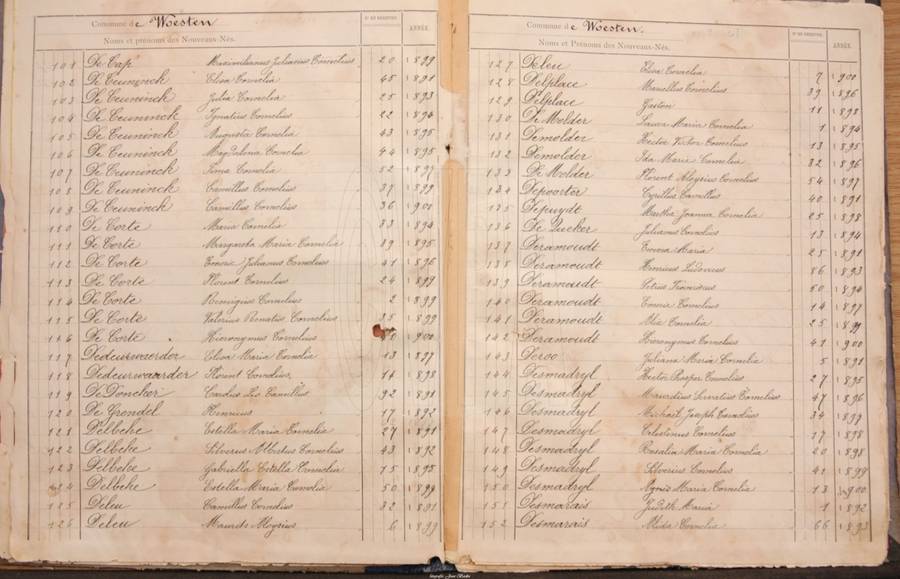 Commune de Woesten
Noms et prénoms des Nouveaux-Nés.
ANNÉE
101 De Cap Maximilianus Julianus Cornelius 20 1899
102 De Ceuninck Elisa Cornelia 45 1891
103 De Ceuninck Julia Cornelia 25 1893
104 De Ceuninck Ignatius Cornelius 22 1894
105 De Ceuninck Augusta Cornelia 43 1895
106 De Ceuninck Magdalena Cornelia 44 1895
107 De Ceuninck Cornelia 52
108 De Ceuninck Camillus Cornelius 37 1899
109 De Ceuninck Camillus Cornelius 36 1900
110 De Corte Maria Cornelia 33 1894
111 De Corte Margareta Maria Cornelia 39 1895
112 De Corte Julianus Cornelius 41 1896
113 De Corte Florent Cornelius 24 1899
114 De Corte Remigius Cornelius 2 1899
115 De Corte Valerius Renatus Cornelius 35 1899
116 De Corte Hieronymus Cornelius 1900
117 Dedeurwaerder Elisa Maria Cornelia 13 1897
118 Dedeurwaarder Florent Cornelius 14 1898
119 De Doncker Carolus Leo Camillus 92 1891
120 De Grendel Henricus 17 1892
121 Delbeke Estella Maria Cornelia 27 1891
122 Delbeke Silverus Albertus Cornelius 43 1892
123 Delbeke Gabriella Estella Cornelia 15 1895
124 Delbeke Estella Maria Cornelia 50 1899
125 Deleu Camillus Cornelius 32 1891
126 Deleu Maurits Aloysius 6 1899
Commune de Woesten
Noms et Prénoms des Nouveaux-Nés.
ANNÉE
127 Deleu Elisa Cornelia 7 1900
128 Delplace Marcellus Cornelius 39 1896
129 Delplace Gaston 11 1898
130 De Molder Laura Maria Cornelia 1 1894
131 Demolder Hector Victor Cornelius 13 1895
132 Demolder Ida Maria Cornelia 32 1896
133 De Molder Florent Aloysius Cornelius 54 1897
134 Depoorter Cyrillus Camillus 40 1891
135 Depuydt Martha Joanna Cornelia 25 1898
136 De Julianus Cornelius 13 1894
137 Deramoudt Emma Maria 25 1891
138 Deramoudt Henricus Ludovicus 86 1893
139 Deramoudt Petrus Franciscus 50 1894
140 Deramoudt Cornelius 14 1897
141 Deramoudt Alix Cornelia 25 1899
142 Deramoudt Hieronymus Cornelius 41 1900
143 Deroo Juliana Maria Cornelia 5 1891
144 Desmadryl Hector Prosper Cornelius 27 1895
145 Desmadryl Mauritius Servatius Cornelius 47 1896
146 Desmadryl Michaël Joseph Cornelius 34 1897
147 Desmadryl Celestinus Cornelius 17 1898
148 Desmadryl Rosalia Maria Cornelia 20 1898
149 Desmadryl Silverius Cornelius 41 1899
150 Desmadryl Agnes Maria Cornelia 13 1900
151 Desmarais Judith Maria 1 1892
152 Desmarais Alida Cornelia 66 1893